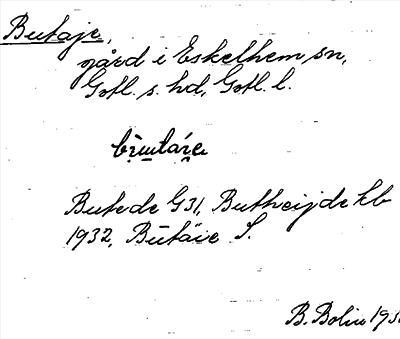 Butaje,
gård i Eskelhem sn,
Gotl. s. hd, Gotl. l.
Butede G31, Butheijde kb
1932, Butäie S.
B. Bolin